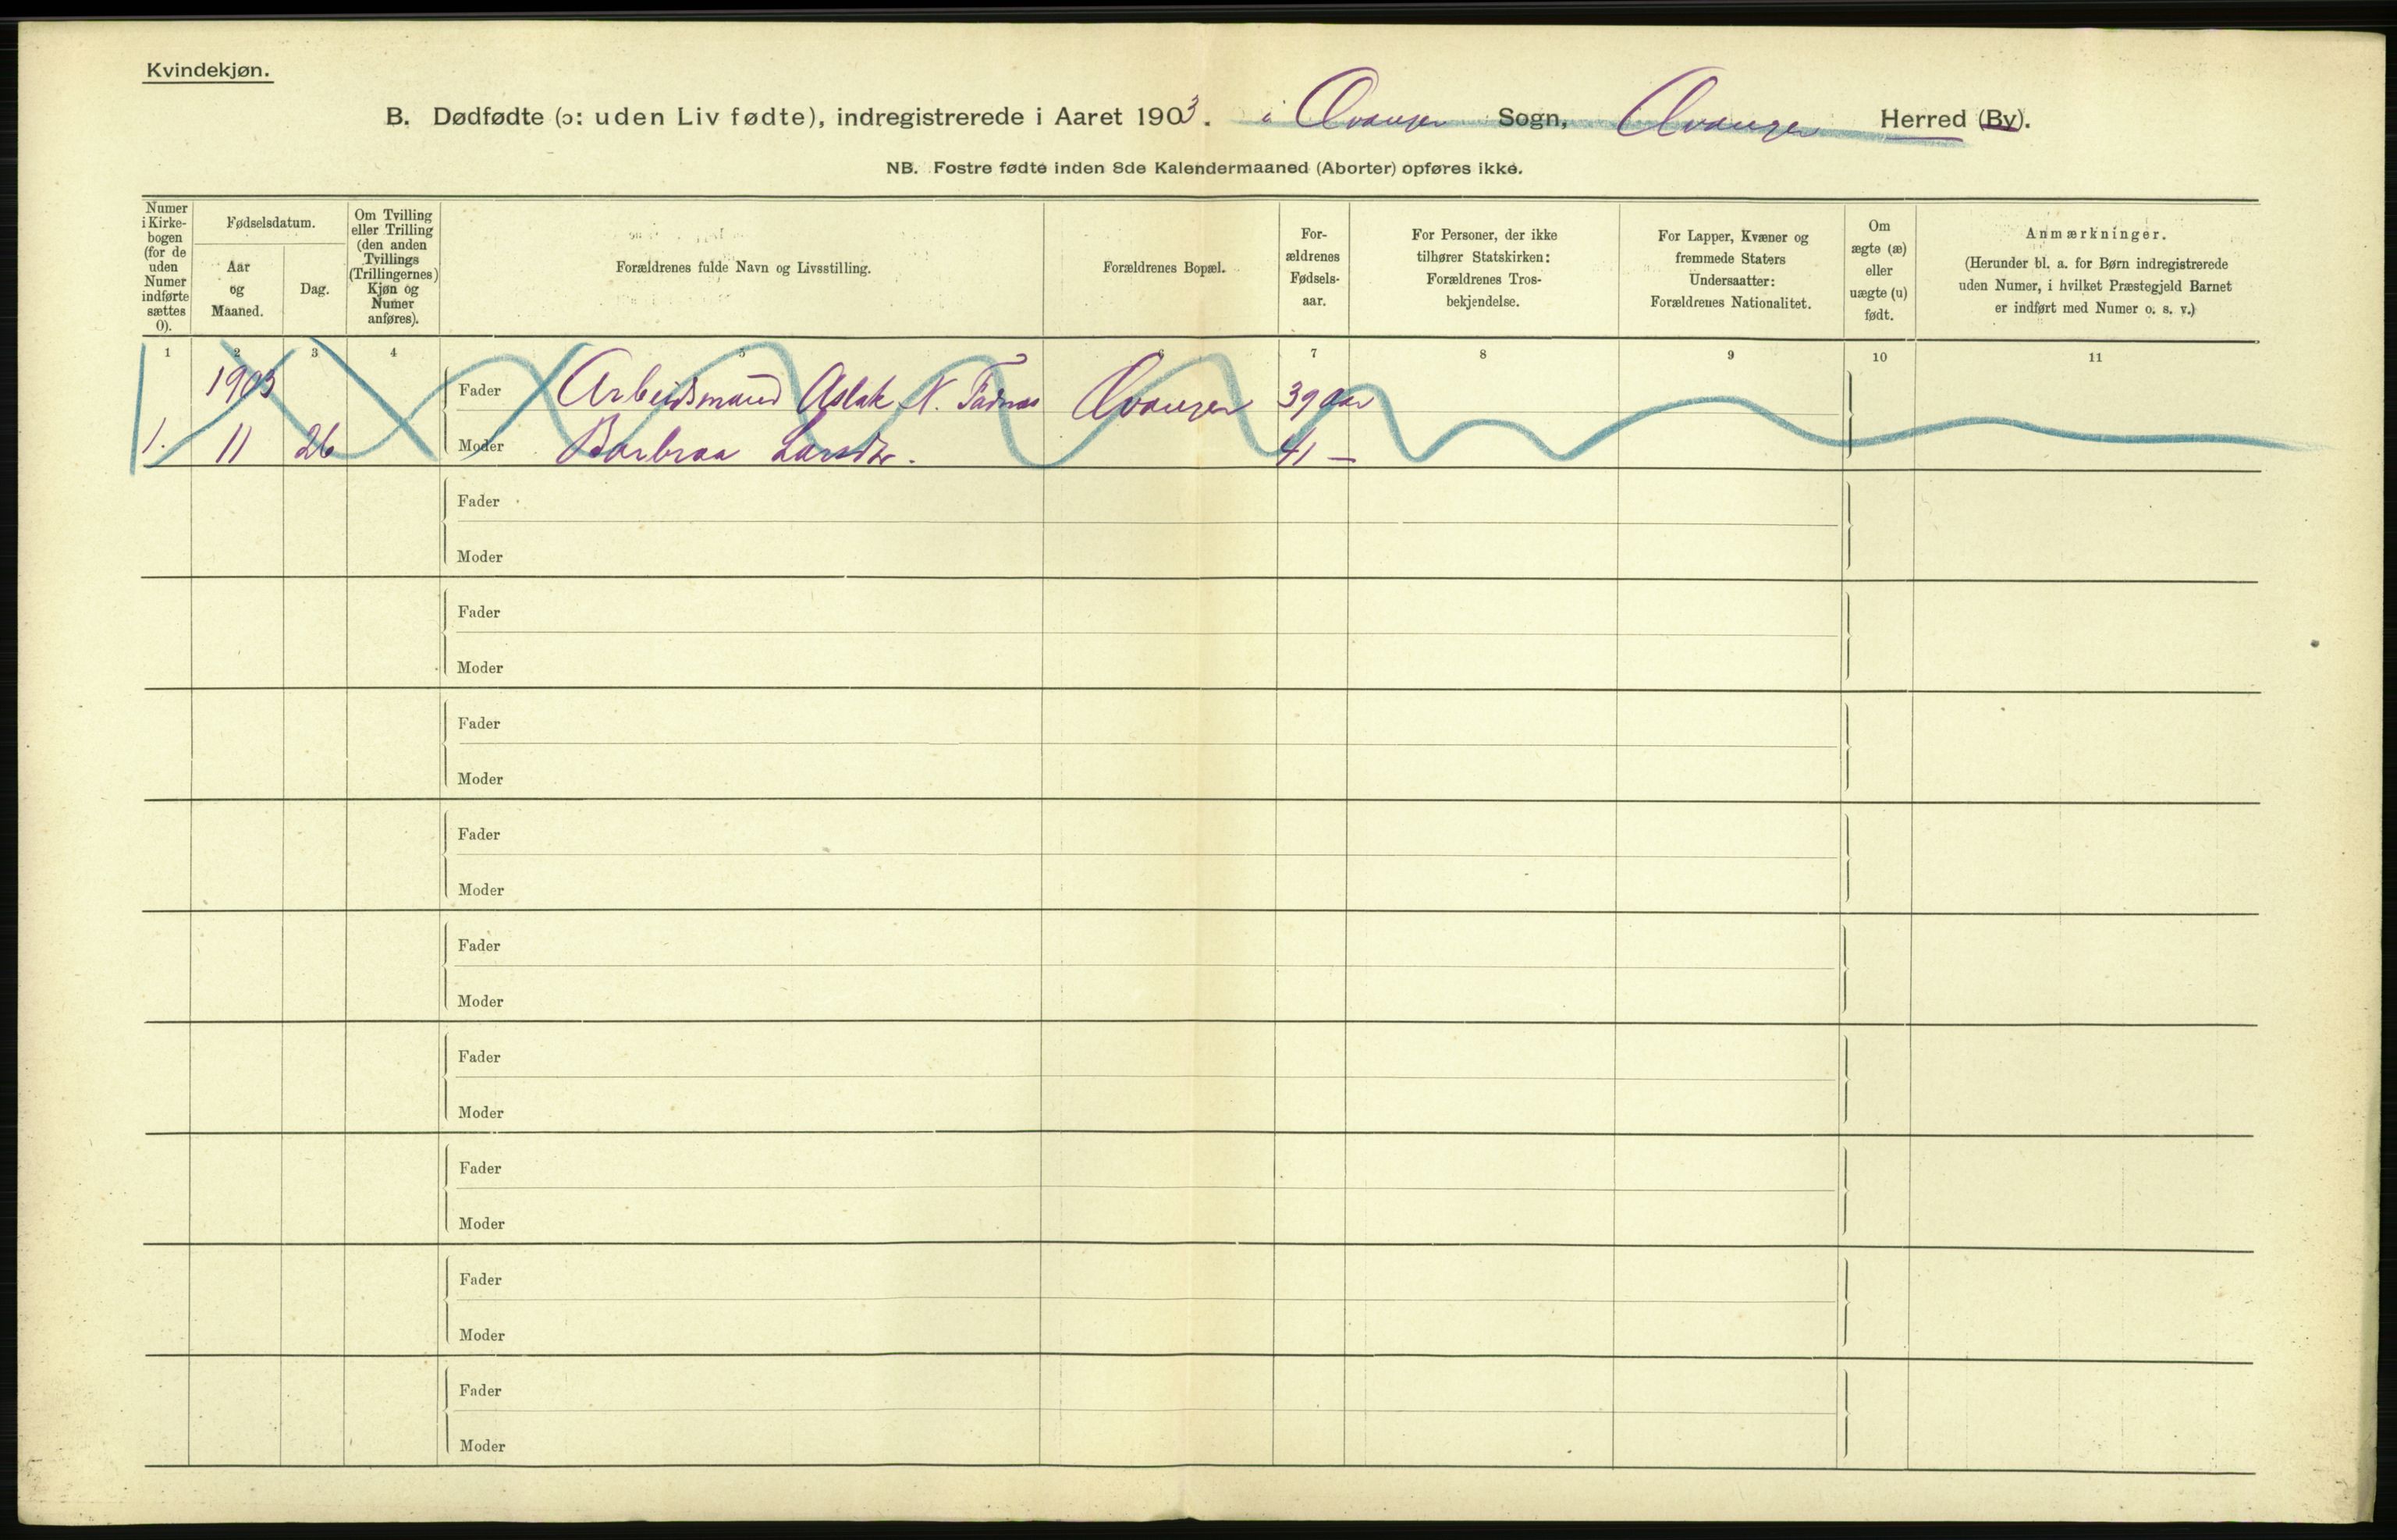 Kvindekjøn.
B. Dødfødte (ɔ: uden Liv fødte), indregistrerede i Aaret 1903. i Qvanger Sogn, Qvanger Herred (By).
NB. Fostre fødte inden 8de Kalendermaaned (Aborter) opføres ikke.
Numer i Kirke-bogen (for de uden Numer indførte sættes 0).
Fødselsdatum.
Aar og Maaned.
Dag.
Om Tvilling eller Trilling (den anden Tvillings (Trillingernes) Kjøn og Numer anføres).
Forældrenes fulde Navn og Livsstilling.
Forældrenes Bopæl.
For-ældrenes Fødsels-aar.
For Personer, der ikke tilhører Statskirken: Forældrenes Tros-bekjendelse.
For Lapper, Kvæner og fremmede Staters Undersaatter: Forældrenes Nationalitet.
Om ægte (æ) eller uægte (u) født.
Anmærkninger.
(Herunder bl. a. for Børn indregistrerede uden Numer, i hvilket Præstegjeld Barnet er indført med Numer o. s. v.)
1 2 3 4 5 6 7 8 9 10 11
1903 Fader Arbeidsmand Aslak N. Qvanger 39 aar
1. 11 26 Moder Barbraa Larsdtr. 41 —
Fader
Moder
Fader
Moder
Fader
Moder
Fader
Moder
Fader
Moder
Fader
Moder
Fader
Moder
Fader
Moder
Fader
Moder